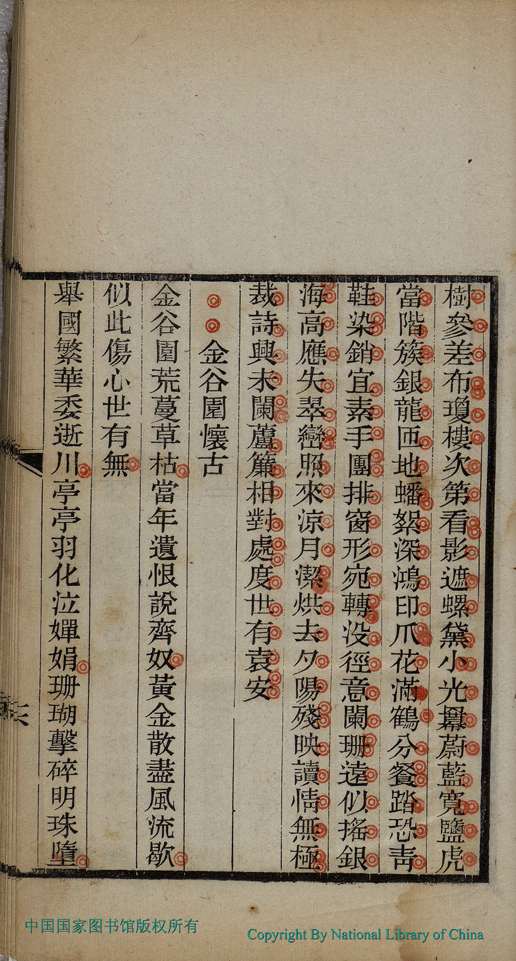 樹參差布瓊樓次第看影遮螺黛小光冪蔚藍寬鹽虎
當階簇銀龍匝地蟠絮深鴻印爪花滿鶴分餐踏恐靑
鞋染銷宜素手團排窗形宛轉没徑意闌珊遠似搖銀
海高應失翠巒照來涼月潔烘去夕陽殘映讀情無極
裁詩興未闌蘆簾相對處度世有袁安
金谷園懷古
金谷園荒蔓草枯當年遺恨說齊奴黃金散盡風流歇
似此傷心世有無
舉國繁華委逝川亭亭羽化泣嬋娟珊瑚擊碎明珠墮
中国国家图书馆版权所有
Copyright By National Library of China